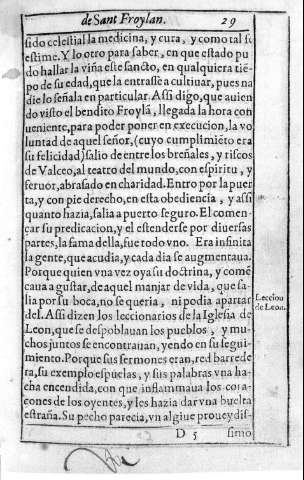 de Sant Froylan. 29
sido celestial la medicina, y cura, y como tal se
estime. Y lo otro para saber, en que estado pu
do hallar la viña este sancto, en qualquiera tiē-
po de su edad, que la entrasse a cultiuar, pues na
die lo señala en particular. Assi digo, que auien
do visto el bendito Froylā, llegada la hora con
ueniente, para poder poner en execucion, la vo
luntad de aquel señor, (cuyo cumplimiēto era
su felicidad) salio de entre los breñales, y riscos
de Valceo, al teatro del mundo, con espiritu, y
feruor, abrasado en charidad. Entro por la puer
ta, y con pie derecho, en esta obediencia, y assi
quanto hazia, salia a puerto seguro. El comen-
çar su predicacion, y el estenderse por diuersas
partes, la fama della, fue todo vno. Era infinita
la gente, que acudia, y cada dia se augmentaua.
Porque quien vna vez oya su doctrina, y comē
çaua a gustar, de aquel manjar de vida, que sa-
lia por su boca, no se queria, ni podia apartar
del. Assi dizen los leccionarios de la Iglesia de
Leon, que se despoblauan los pueblos, y mu-
chos juntos se encontrauan, yendo en su segui-
miento. Porque sus sermones eran, red barrede
ra, su exemplo espuelas, y sus palabras vna ha-
cha encendida, con que inflammaua los cora-
çones de los oyentes, y les hazia dar vna buelta
estraña. Su pecho parecia, vn algiue proueydis-
D 5 simo
Leccion
de Leon.